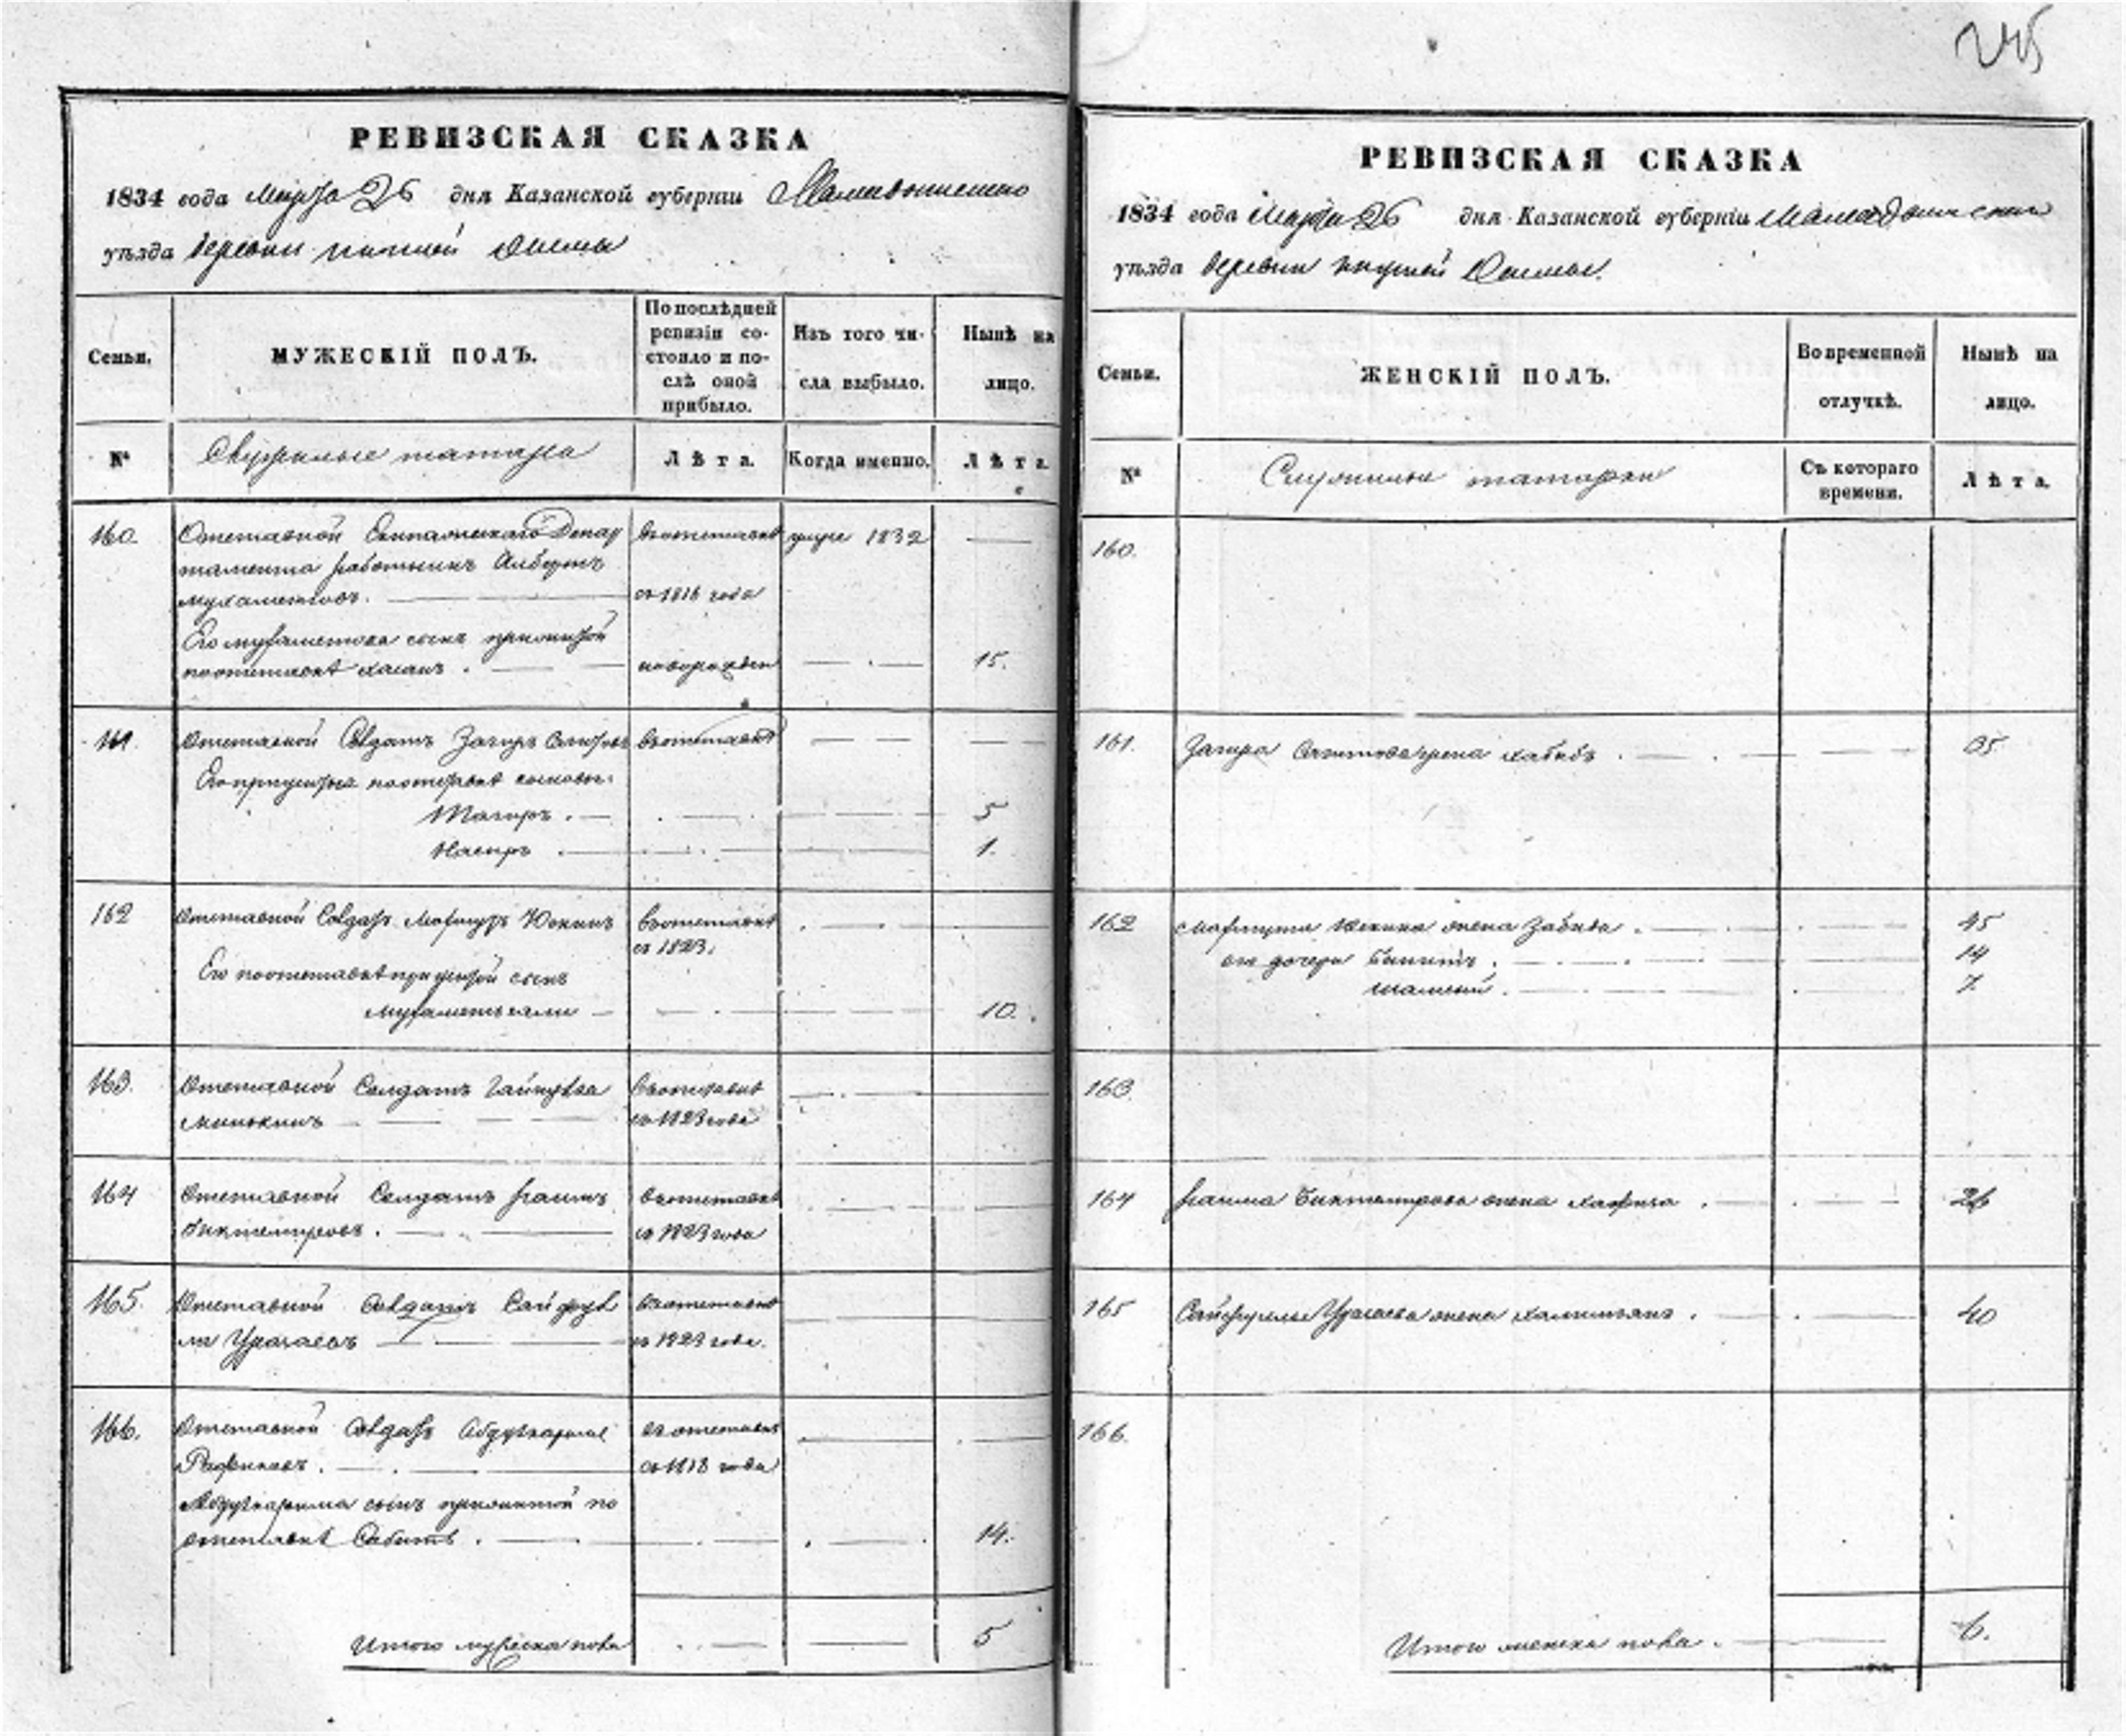 245
РЕВИЗСКАЯ СКАЗКА
1834 года Марта 26 дня Казанской губерніи Мамадышскаго
уѣзда деревни нижней Ошмы
Семьи.
МУЖЕСКІЙ ПОЛЪ.
По послѣдней ревизіи состояло и послѣ оной прибыло.
Изъ того числа выбыло.
Нынѣ на лицо.
№
Служилые татара
Лѣта.
Когда именно.
Лѣта.
160
Отставной Департамента работникъ
Мухаметовъ.
въ отставкѣ
съ 1816 года
умре 1832
Его Мухаметова сынъ прижитой
по отставкѣ Хасанъ.
новорожден
15.
161.
Отставной Солдатъ Загиръ Сагитовъ
въ отставкѣ
Его прижитые по отставкѣ сыновья:
Тагиръ.
5
Насыръ
1.
162
Отставной Солдатъ Мавлютъ Юкинъ
въ отставкѣ
съ 1823.
Его по отставкѣ прижитой сынъ
10.
163.
Отставной Солдатъ
въ отставкѣ
съ 1823 года
164
Отставной Солдатъ
Биктемировъ.
въ отставкѣ
съ 1823 года
165.
Отставной Солдатъ Сайфул
ла Уразаевъ
въ отставкѣ
съ 1823 года.
166.
Отставной Солдатъ Абдулкаримъ
Рафиковъ.
въ отставкѣ
съ 1818 года
Абдулкарима сынъ прижитой по
отставкѣ Сабитъ.
14.
Итого мужеска пола
5
РЕВИЗСКАЯ СКАЗКА
1834 года Марта 26 дня Казанской губерніи Мамадышскаго
уѣзда деревни нижней Ошмы.
Семьи.
ЖЕНСКІЙ ПОЛЪ.
Во временной отлучкѣ.
Нынѣ на лицо.
№
Служилые татарки
Съ котораго времени.
Лѣта.
160.
161.
Загира Сагитова жена
35
162
жена Забида.
45
его дочери
14
7.
163.
164
Биктемирова жена Хафиза.
26
165
Сайфуллы Уразаева жена
40
166.
Итого женска пола.
6.